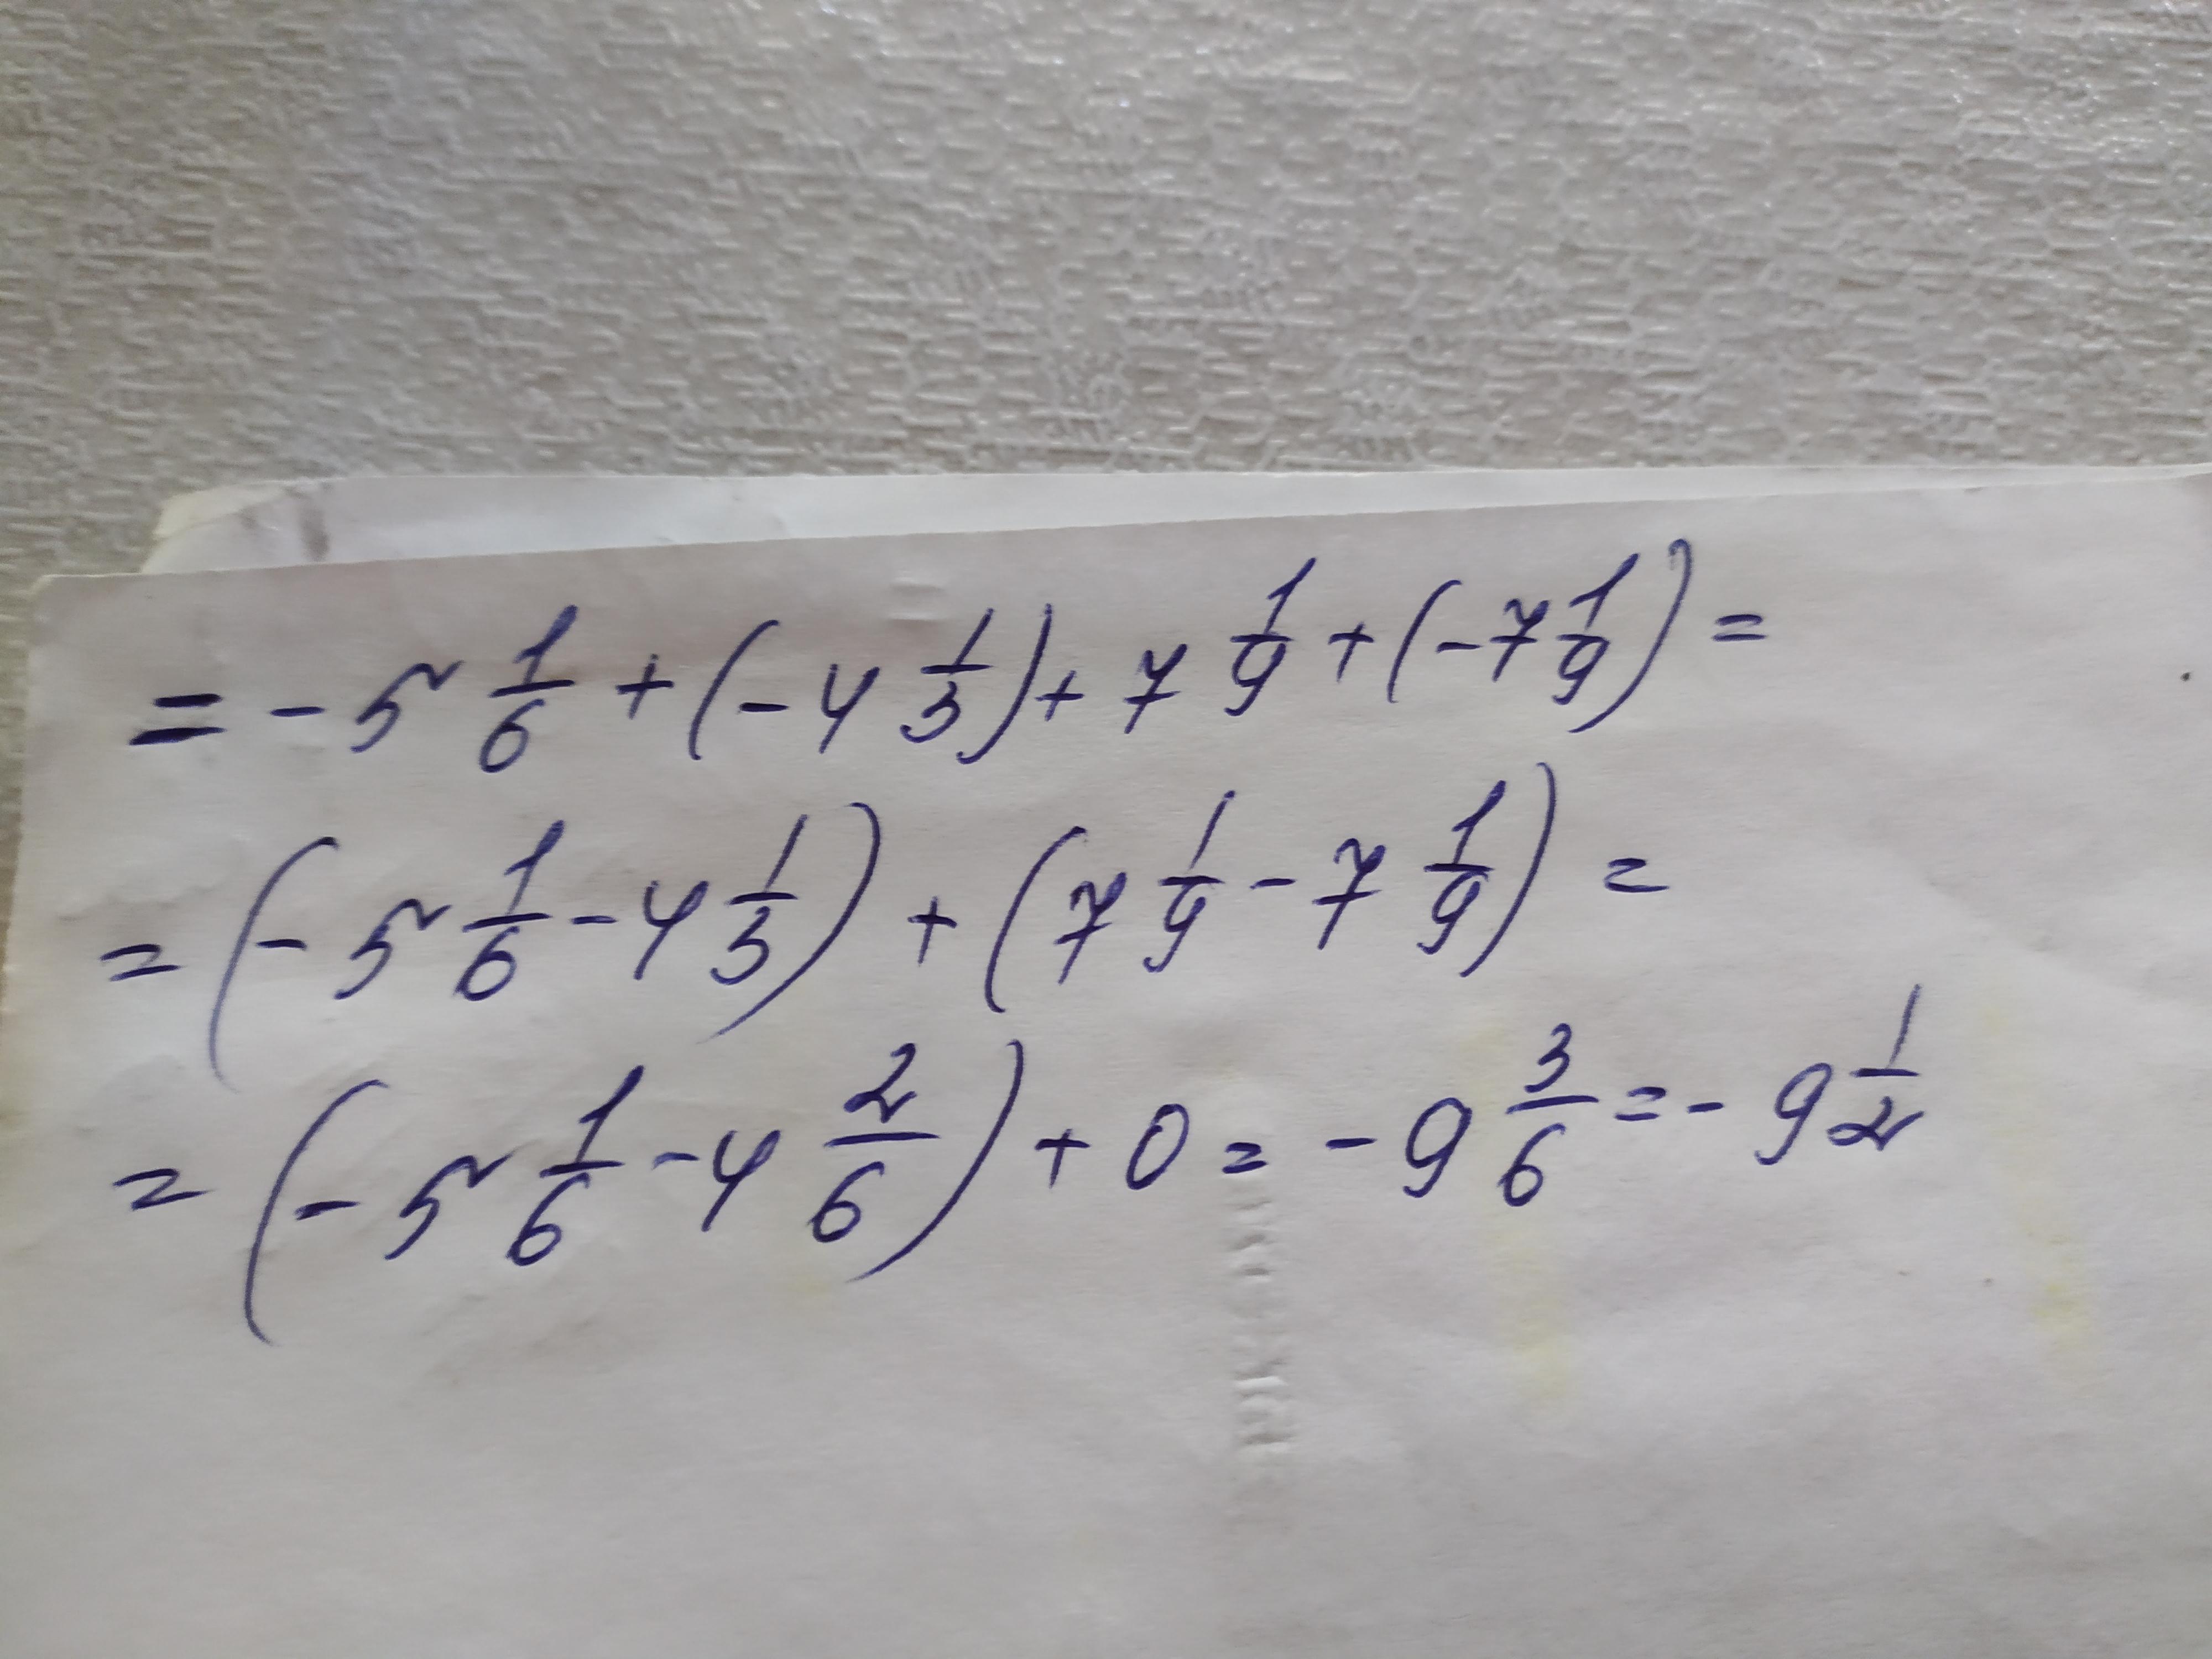 = - 5 1/6 + (- 4 1/3) + 7 1/9 + (- 7 1/9) =
= (- 5 1/6 - 4 1/3) + (7 1/9 - 7 1/9) =
= (- 5 1/6 - 4 2/6) + 0 = - 9 3/6 = - 9 1/2